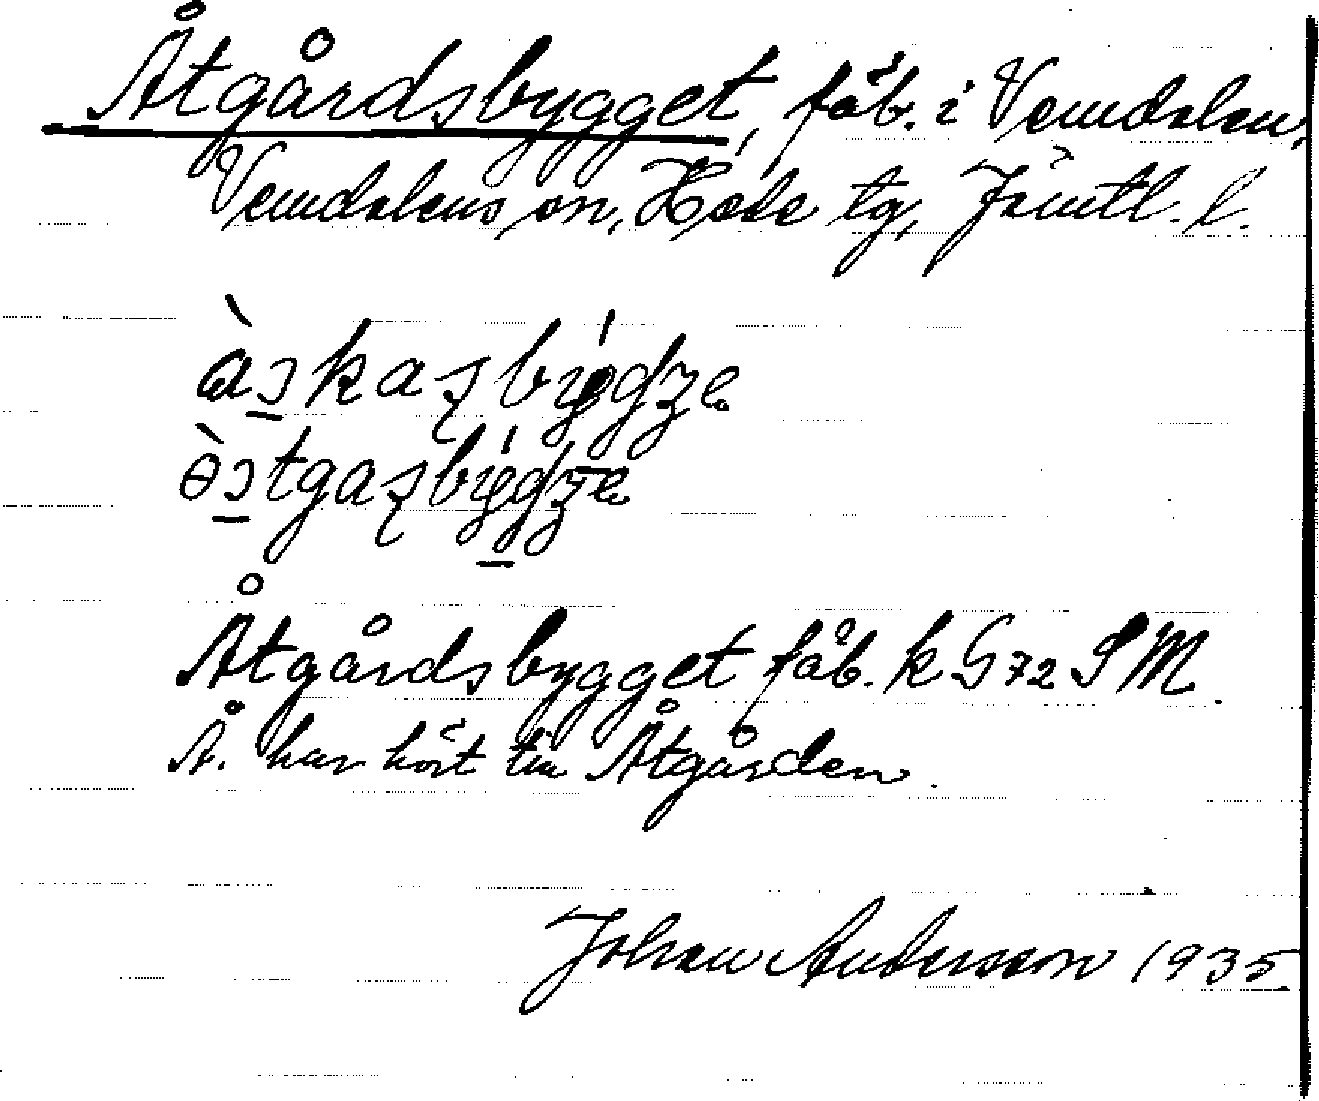 Åtgårdsbygget, fäb. i Vemdalen,
Vemdalens sn, Hede tg, Jämtl. l.
Åtgårdsbygget fäb. k G72 SM.
Å. har hört till Åtgården.
Johan Anderson 1935